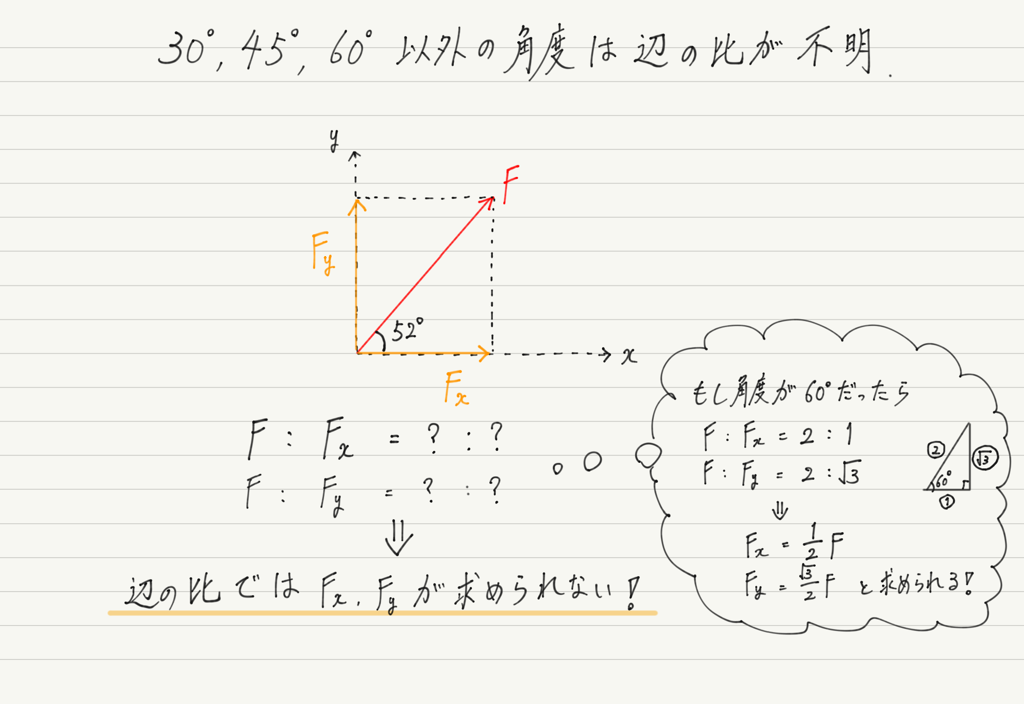 30°, 45°, 60° 以外の角度は辺の比が不明.
y
F
Fy
52°
x
Fx
F : Fx = ? : ?
F : Fy = ? : ?
⇓
辺の比では Fx, Fy が求められない!
もし角度が60°だったら
F : Fx = 2 : 1
F : Fy = 2 : √3
② √3
60°
①
⇓
Fx = 1/2 F
Fy = √3/2 F と求められる!